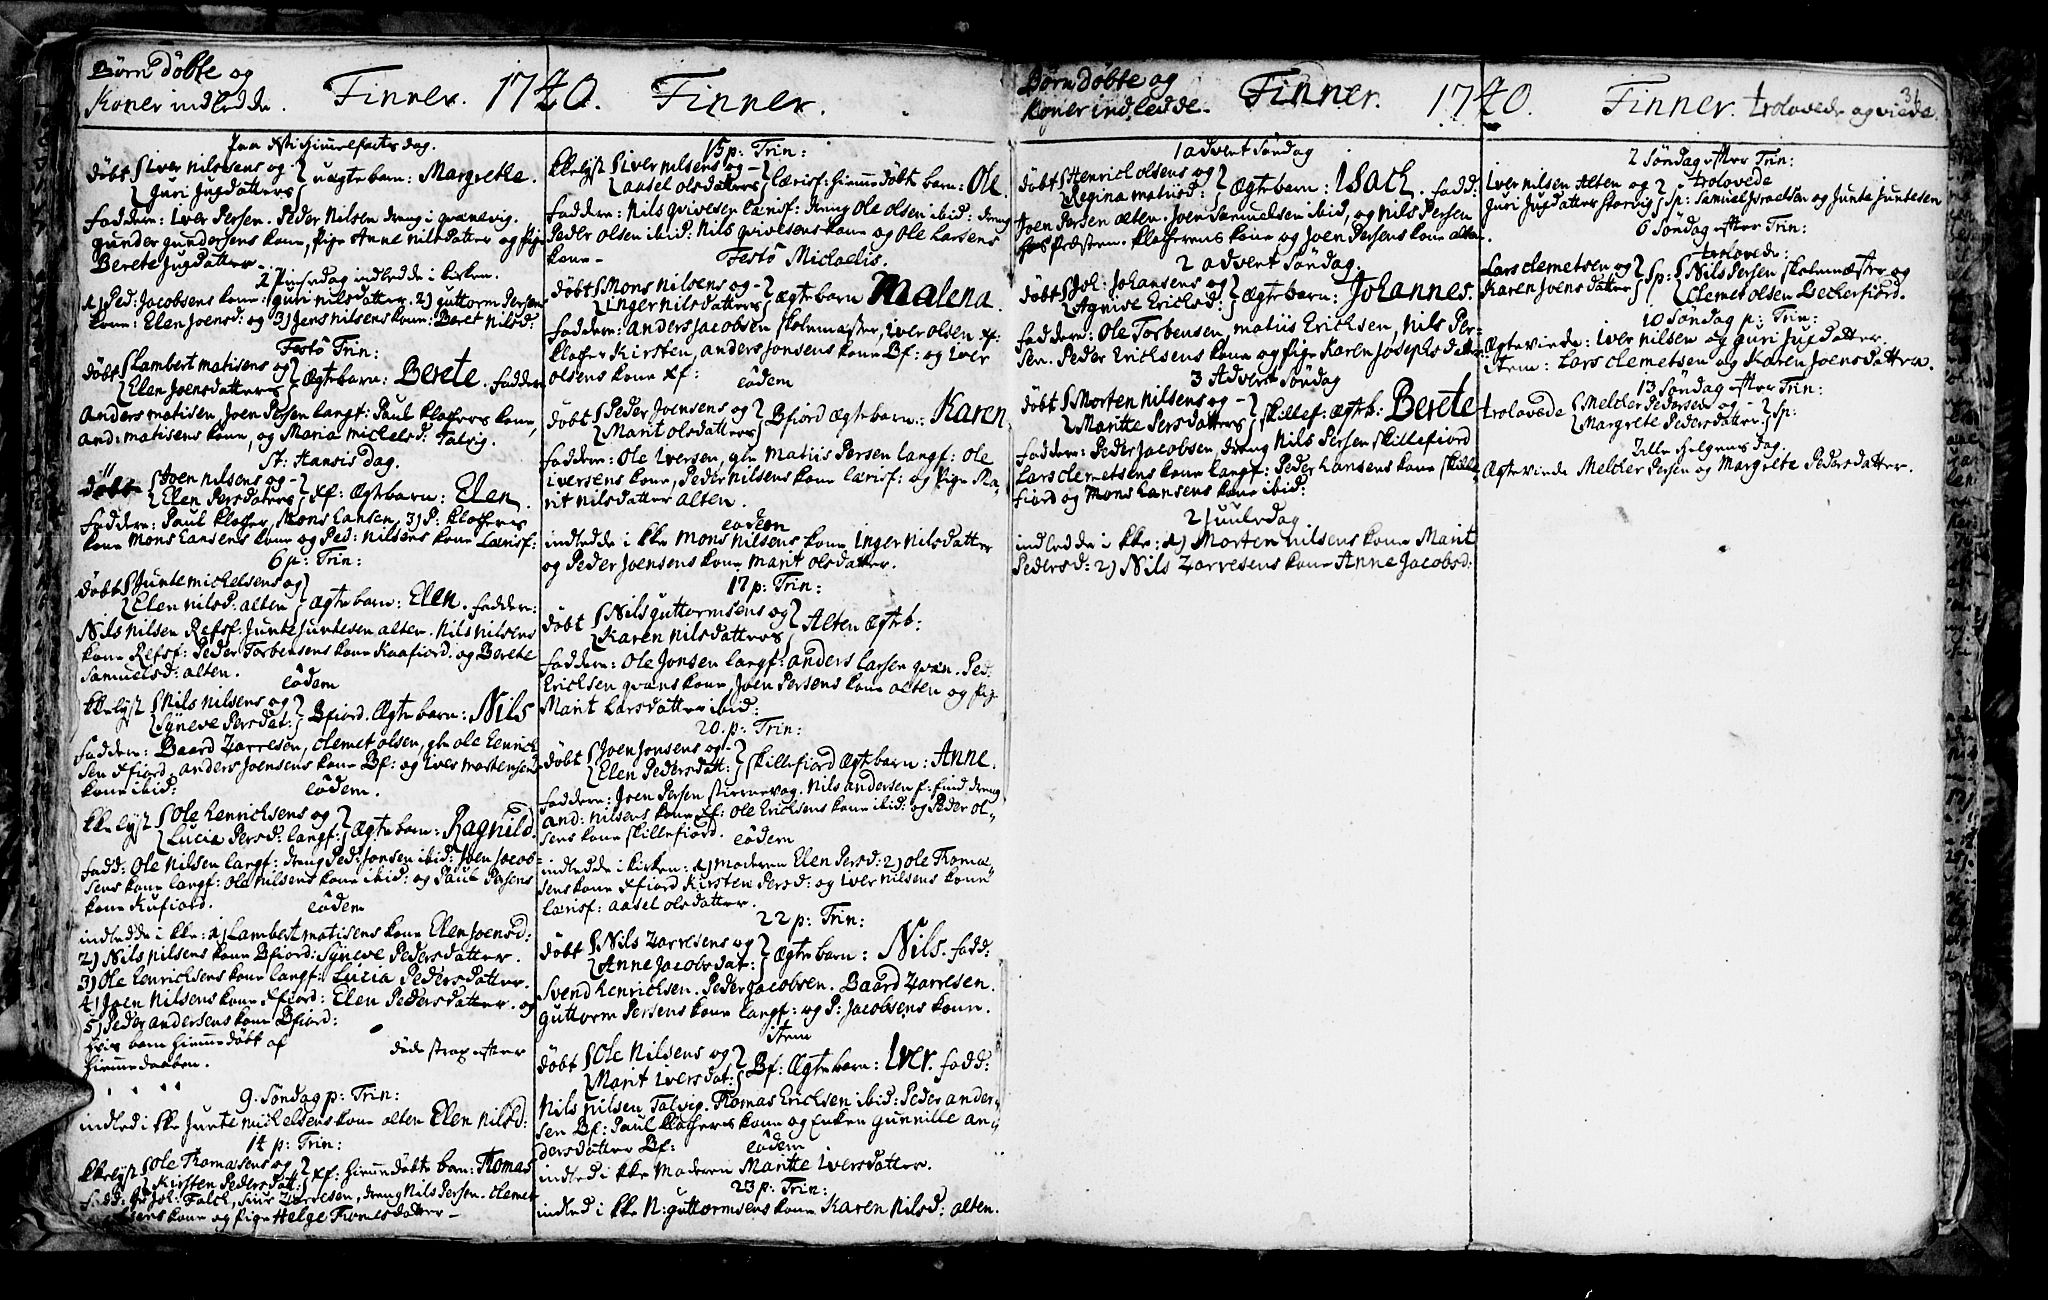 Børn døbte og
Koner indledde.
Finner. 1740. Finner.
Paa Xsti Himmelfarts dag.
døbt Iver Nilssens og
Guri Jugdatters uægte barn: Margrethe.
faddere: Iver Persen. Peder Nilsen dreng i qvænevig.
gunder gundersens kone, Pige Anne Nilsdatter og Pige
Berete Jugdatter.
2 Pintsedag indledde i kirken.
1) Ped: Jacobsens kone: guri nilsdatter. 2) guttorm Persens
kone: Elen Joensd: og 3) Jens Nilsens kone: Beret Nilsd:
Festo Trin:
døbt Lambert matisens og
Elen Joensdatters Ægte barn: Berete. faddere
Anders matisen, Joen Persen langf: Paul klockers kone,
and: matisens kone, og Maria michelsd: Talvig.
St: Hansis Dag.
døbt Joen nilsens og
Elen Persdatters Xf: Ægte barn: Elen.
faddere: Paul klocker, Mons Hansen, 3) P: klockers
kone Mons Hansens kone og Ped: Nilsens kone Lærisf:
6 p: Trin:
døbt Junte michelsens og
Elen nilsd: alten Ægte barn: Elen. faddere:
Nils Nilsen Refsf: Junte Juntesen alten. Nils Nilsens
kone Refsf: Peder Torbensens kone Kaafiord. og Berete
Samuelsd: alten.
eodem
kkelyst Nils Nilsens og
Syneve Persdat: Bfiord. Ægte barn: Nils
faddere: Baard Zarresen, clemet olsen, gln ole Henrich
sen Xfiord. anders Joensens kone Bf: og Iver mortensens
kone ibid:
eodem.
kkelyst Ole Henrichsens og
Lucia Persd: langf: Ægte barn: Ragnild.
fadd: Ole Nilsen langf: dreng Ped: Jonsen ibid: Joen Jacob=
sens kone langf: Ole Nilsens kone ibid: og Paul Persens
kone Kufiord.
eodem
indledde i kke: 1) Lambert matisens kone Elen Joensd:
2) Nils Nilsens kone Bfiord: Syneve Pedersdatter.
3) Ole Henrichsens kone langf: Lucia Pedersdatter.
4) Joen Nilsens kone Xfiord: Elen Pedersdatter. og
5) Peder andersens kone Bfiord:
hvis barn hiemmedøbt af
hiemmedaaben. døde strax efter
9. Søndag p: Trin:
indled i kke Junte michelsens kone alten Elen Nilsd:
14 p: Trin:
kkelyst Ole Thomasens og
Kirsten Pedersdatt: Xf: hiemmedøbte barn: Thomas
fadd: Joh: Falch, Siur Zarresen, dreng Nils Persen. clemet
kone og Pige Helge Thomesdatter –
15 p: Trin:
kkelyst Iver nilsens og –
aasel olsdatters Lærisf: hiemmedøbt barn: Ole
faddere: Nils qvivesen lærisf: dreng Ole olsen ibid: dreng
Peder olsen ibid: Nils qvivesens kone og Ole Larsens
kone –
Festo Michaelis.
døbt Mons nilsens og –
Inger nilsdatters ægte barn Malena.
faddere: Anders Jacobsen skolemæster, Iver olsen Xf:
klocker Kirsten, anders Jonsens kone Bf: og Iver
olsens kone Xf:
eodem
døbt Peder Joensens og
Marit olsdatters Bfiord ægte barn: Karen
faddere: Ole Iversen, gln Matiis Persen langf: Ole
iversens kone, Peder Nilsens kone lærisf: og Pige Ma=
rit Nilsdatter alten.
eodem
indledde i kke Mons Nilsens kone Inger Nilsdatter
og Peder Joensens kone marit olsdatter.
17 p: Trin:
døbt Nils guttormsens og
Karen Nilsdatters Alten Ægteb:
faddere: Ole Jonsen langf: anders Larsen qvæn. Ped:
Erichsen qvæns kone, Joen Persens kone alten og Pige
Marit Larsdatter ibid:
20. p: Trin:
døbt Joen Jonsens og –
Elen Pedersdatt: Skillefiord ægte barn: Anne.
faddere: Joen Persen stiernevog. Nils andersen f: find dreng
and: nilsens kone Xf: Ole Erichsens kone ibid: og Peder ol=
sens kone skillefiord.
eodem
indledde i kirken: 1) moderen Elen Persd: 2) Ole Thoma=
sens kone Xfiord Kirsten Persd: og Iver nilsens kone
Lærisf: aasel olsdatter.
22 p: Trin:
døbt Nils Zarresens og
Anne Jacobsdat: Ægte barn: Nils. fadd:
Svend Henrichsen. Peder Jacobsen. Baard Zarresen.
guttorm Persens kone langf: og P: Jacobsens kone.
item
døbt Ole Nilsens og
Marit Iversdat: Bf: Ægte barn: Iver. fadd:
Nils Nilsen Talvig. Thomas Erichsen ibid: Peder ander=
sen Bf: Paul klockers kone og Enken Gunnille an=
dersdatter Bf:
eodem
indled i kke Moderen Maritte Iversdatter.
23 p: Trin:
indled i kke N: guttormsens kone Karen Nilsd: alten.
Børn døbte og
Koner indledde.
Finner. 1740.
1 advent Søndag
døbt Henrich olsens og
Regina matiisd: Ægte barn: Isach. fadd:
Joen Persen alten. Joen Samuelsen ibid, og Nils Persen
hos Præsten. klockerens kone og Joen Persens kone alten
2 advent Søndag.
døbt Joh: Johansens og
Agnise Erichsd: Ægte barn: Johannes.
faddere: Ole Torbensen, matiis Erichsen, Nils Per=
sen. Peder Erichsens kone og Pige Karen Josephsdatter
3 Advent Søndag
døbt Morten nilsens og –
Maritte Persdatters skillef: ægteb: Berete
faddere: Peder Jacobsen, dreng Nils Persen skillefiord
Lars clemetsens kone langf: Peder Hansens kone skille=
fiord og Mons Hansens kone ibid:
2 Juuledag
indledde i kke: 1) Morten nilsens kone Marit
Pedersd: 2) Nils Zarresens kone Anne Jacobsd:
Finner. trolovede og viede.
31
2 Søndag efter Trin:
trolovede
Iver nilsen Alten og
Guri Jugdatter Storvig Sp: Samuel Israelsen og Junte Juntesen
6 Søndag efter Trin:
trolovede:
Lars clemetsen og
Karen Joensdatter Sp: Nils Persen skolemæster og
Clemet olsen Leckerfiord.
10 Søndag p: Trin:
Ægteviede: Iver Nilsen og Guri Jugdatter.
Item: Lars clemetsen og Karen Joensdatter.
13 Søndag efter Trin:
trolovede Melcher Pedersen og –
Margrete Pedersdatter Sp:
Alle Helgens dag.
Ægteviede Melcher Persen og Margrete Pedersdatter.